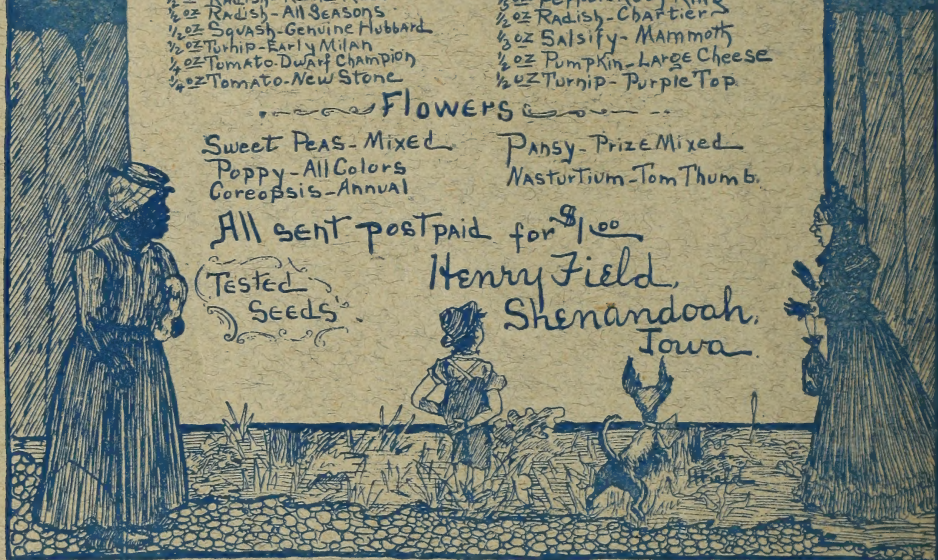 ½ oz Radish-All Seasons
½ oz Squash-Genuine Hubbard
½ oz Turnip-Early Milan
¼ oz Tomato-Dwarf Champion
¼ oz Tomato-New Stone
½ oz Radish-Chartier
⅓ oz Salsify-Mammoth
½ oz Pumpkin-Large Cheese
½ oz Turnip-Purple Top
Flowers
Sweet Peas-Mixed
Poppy-All Colors
Coreopsis-Annual
Pansy-Prize Mixed
Nasturtium-Tom Thumb.
All sent postpaid for $1.00
Tested
Seeds
Henry Field,
Shenandoah,
Iowa